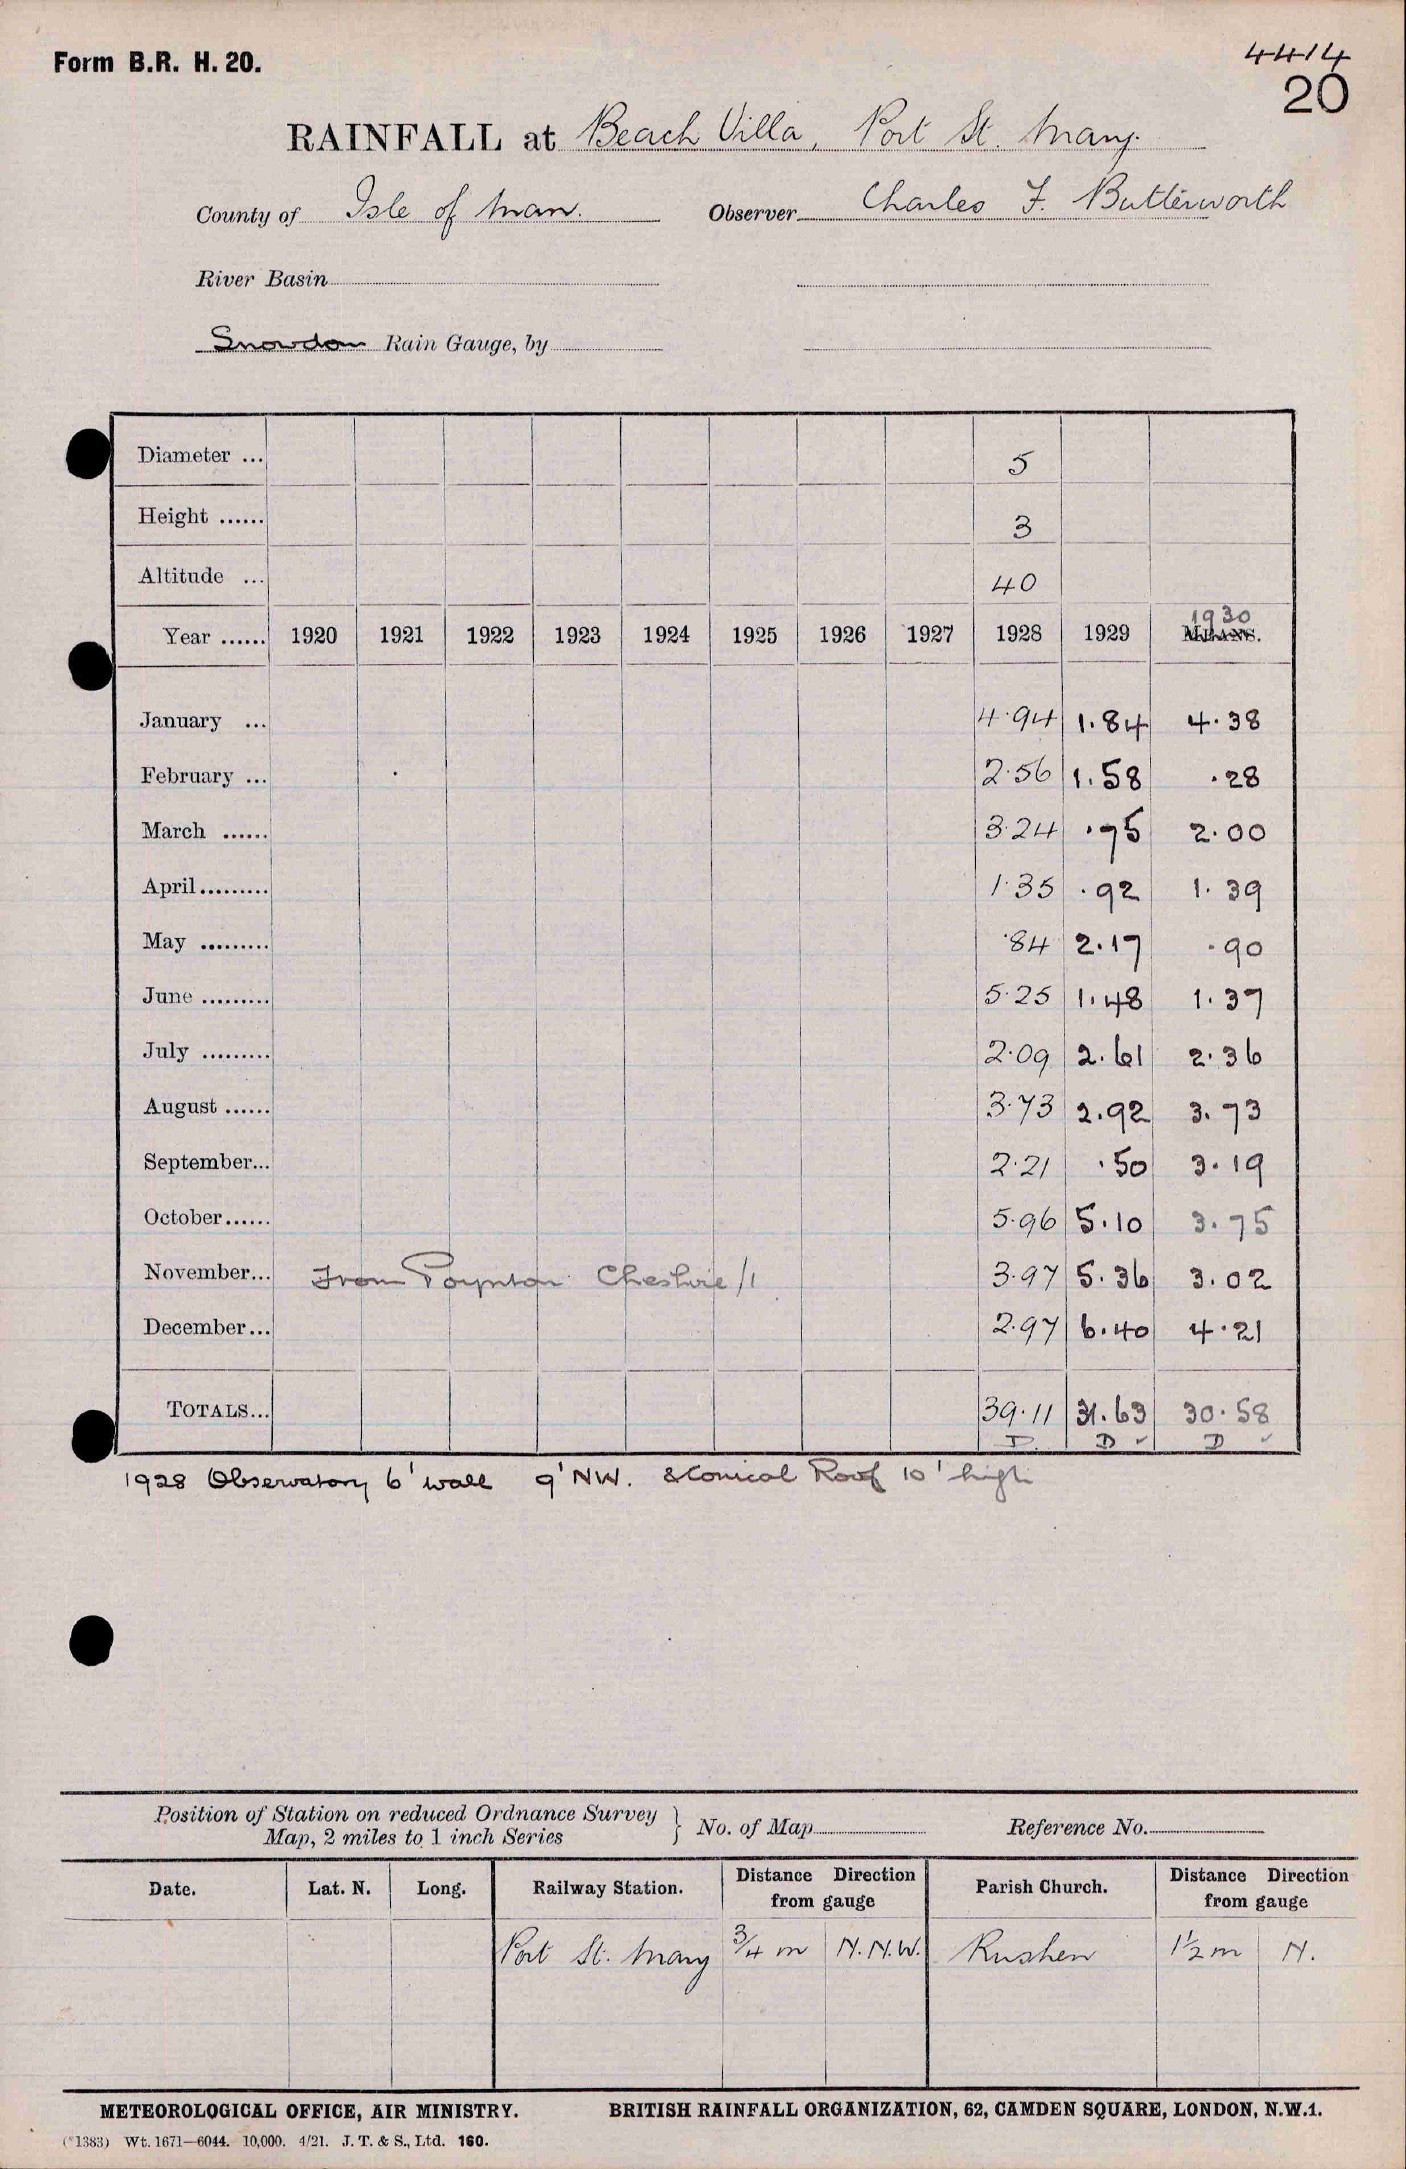 Form B.R. H. 20.
4414
20
RAINFALL at Beach Villa, Port St. Mary.
County of Isle of Man. Observer Charles F. Butterworth
River Basin
Snowdon Rain Gauge, by
Diameter ... 5
Height ...... 3
Altitude ... 40
1930
Year ...... 1920 1921 1922 1923 1924 1925 1926 1927 1928 1929 MEANS.
January ... 4.94 1.84 4.38
February ... 2.56 1.58 .28
March ...... 3.24 .75 2.00
April ......... 1.35 .92 1.39
May ......... .84 2.17 .90
June ......... 5.25 1.48 1.37
July ......... 2.09 2.61 2.36
August ...... 3.73 2.92 3.73
September... 2.21 .50 3.19
October...... 5.96 5.10 3.75
November... From Poynton Cheshire/1 3.97 5.36 3.02
December... 2.97 6.40 4.21
TOTALS... 39.11 31.63 30.58
D. D ✓ D ✓
1928 Observatory 6' wall 9' NW. & Conical Roof 10' high
Position of Station on reduced Ordnance Survey
Map, 2 miles to 1 inch Series } No. of Map Reference No.
Date. Lat. N. Long. Railway Station. Distance Direction from gauge Parish Church. Distance Direction from gauge
Port St. Mary 3/4 m N.N.W. Rushen 1 1/2 m N.
METEOROLOGICAL OFFICE, AIR MINISTRY. BRITISH RAINFALL ORGANIZATION, 62, CAMDEN SQUARE, LONDON, N.W.1.
(*1383) Wt. 1671—6044. 10,000. 4/21. J. T. & S., Ltd. 160.